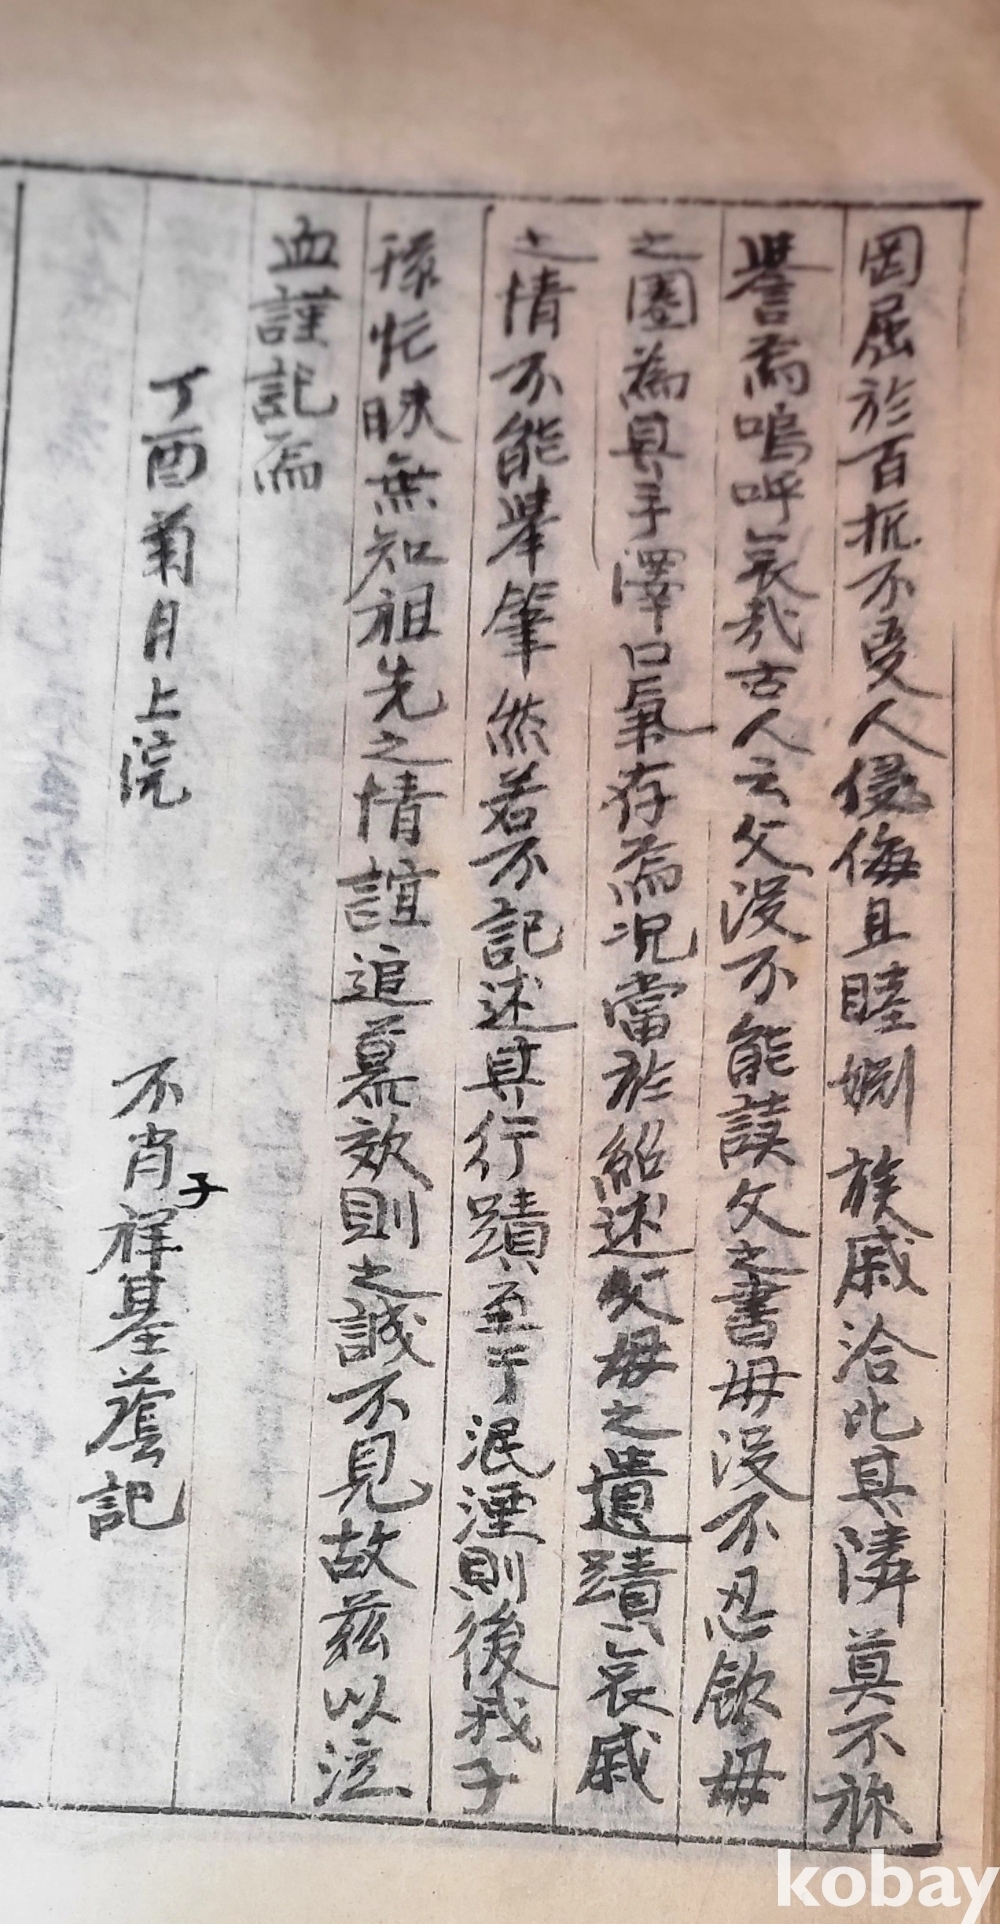 罔屈於百折不受人侵侮且睦婣族戚洽比其隣莫不称
譽焉嗚呼哀哉古人云父沒不能讀父之書母沒不忍飮母
之圈為其手澤口氣存焉况當於紹述父母之遺蹟哀戚
之情不能擧筆然若不記述其行蹟至于泯湮則後我子
孫怅昧無知祖先之情誼追慕效則之誠不見故玆以泣
血謹記焉
丁酉菊月上浣
不肖子祥基
記
kobay